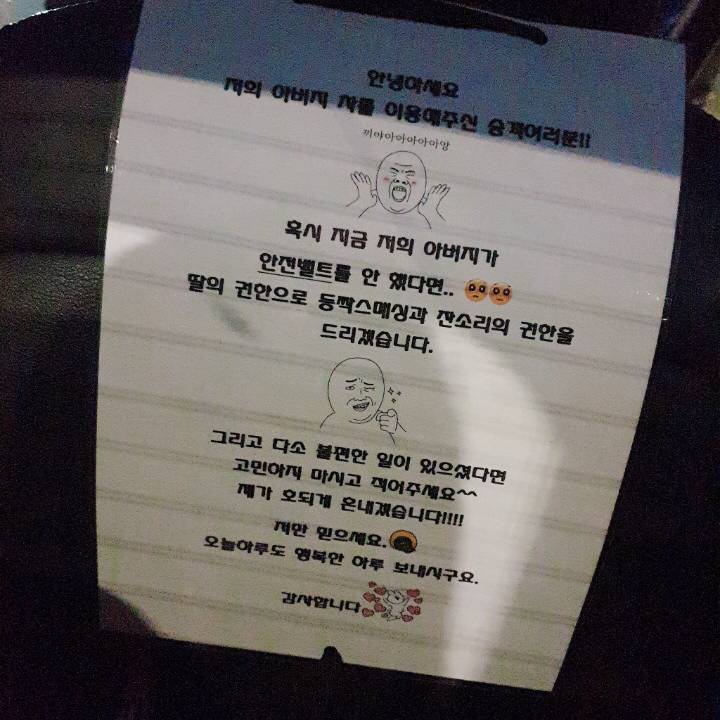 안녕하세요
저의 아버지 차를 이용해주신 승객여러분!!
끼야아아아아아앙
혹시 지금 저희 아버지가
안전밸트를 안 했다면..
딸의 권한으로 등짝스매싱과 잔소리의 권한을
드리겠습니다.
그리고 다소 불편한 일이 있으셨다면
고민하지 마시고 적어주세요^^
제가 호되게 혼내겠습니다!!!!
저만 믿으세요.
오늘하루도 행복한 하루 보내시구요.
감사합니다